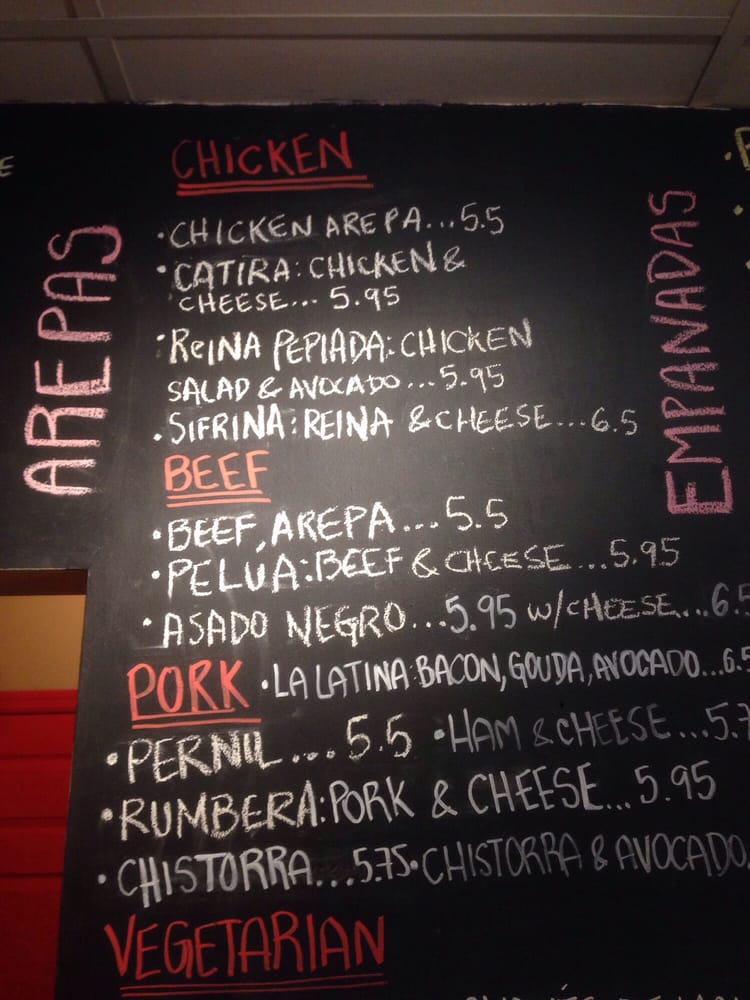 AREPAS
CHICKEN
·CHICKEN AREPA...5.5
·CATIRA: CHICKEN &
CHEESE... 5.95
·REINA PEPIADA: CHICKEN
SALAD & AVOCADO...5.95
·SIFRINA: REINA & CHEESE...6.5
BEEF
·BEEF, AREPA...5.5
·PELUA: BEEF & CHEESE...5.95
·ASADO NEGRO...5.95 W/CHEESE...6.5
PORK ·LA LATINA: BACON, GOUDA, AVOCADO...6.5
·PERNIL....5.5 ·HAM & CHEESE...5.7
·RUMBERA: PORK & CHEESE...5.95
·CHISTORRA...5.75·CHISTORRA & AVOCADO
VEGETARIAN
EMPANADAS